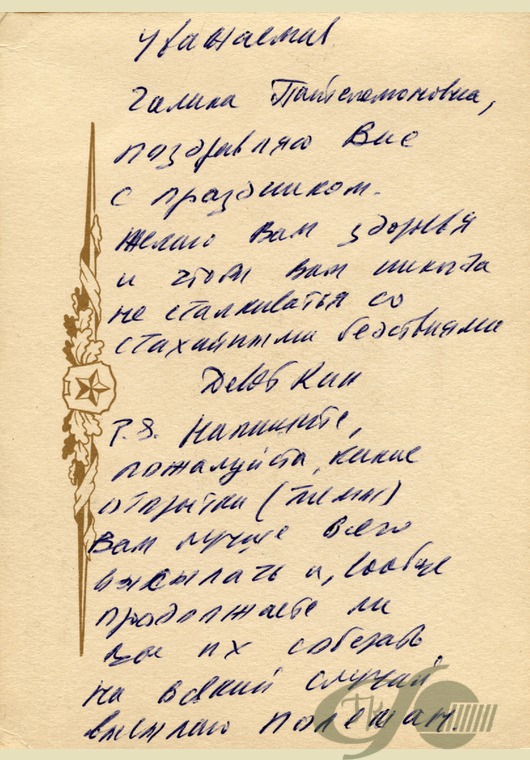 Уважаемая
Галина Пантелемоновна,
поздравляю Вас
с праздником.
Желаю Вам здоровья
и чтобы Вам никогда
не сталкиваться со
стахайными бедствиями
P.S. Напишите,
пожалуйста, какие
открытки (темы)
Вам лучше всего
высылать и, вообще
продолжаете ли
Вы их собирать
На всякий случай
высылаю полежан.